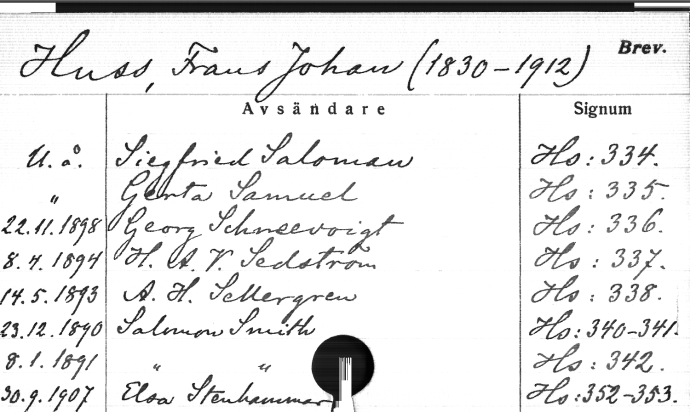 Huss, Frans Johan (1830-1912) Brev.
Avsändare Signum
U. å. Siegfried Saloman Hs: 334.
" Gerta Samuel Hs: 335.
22.11.1898 Georg Schneevoigt Hs: 336.
8.4.1894 H. A. V. Sedström Hs: 337.
14.5.1893 A. H. Sellergren Hs: 338.
23.12.1890 Salomon Smith Hs: 340-341.
8.1.1891 " " Hs: 342.
30.9.1907 Elsa Stenhammar Hs: 352-353.